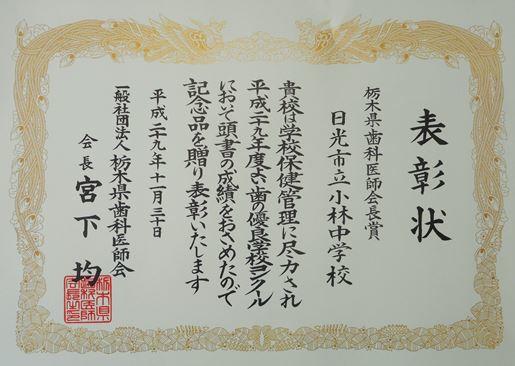 表彰状
栃木県歯科医師会長賞
日光市立小林中学校
貴校は学校保健管理に尽力され
平成二九年度よい歯の優良学校コンクール
において頭書の成績をおさめたので
記念品を贈り表彰いたします
平成二九年十一月三十日
一般社団法人 栃木県歯科医師会
会長 宮下均
栃木県
歯科医師
会長之印